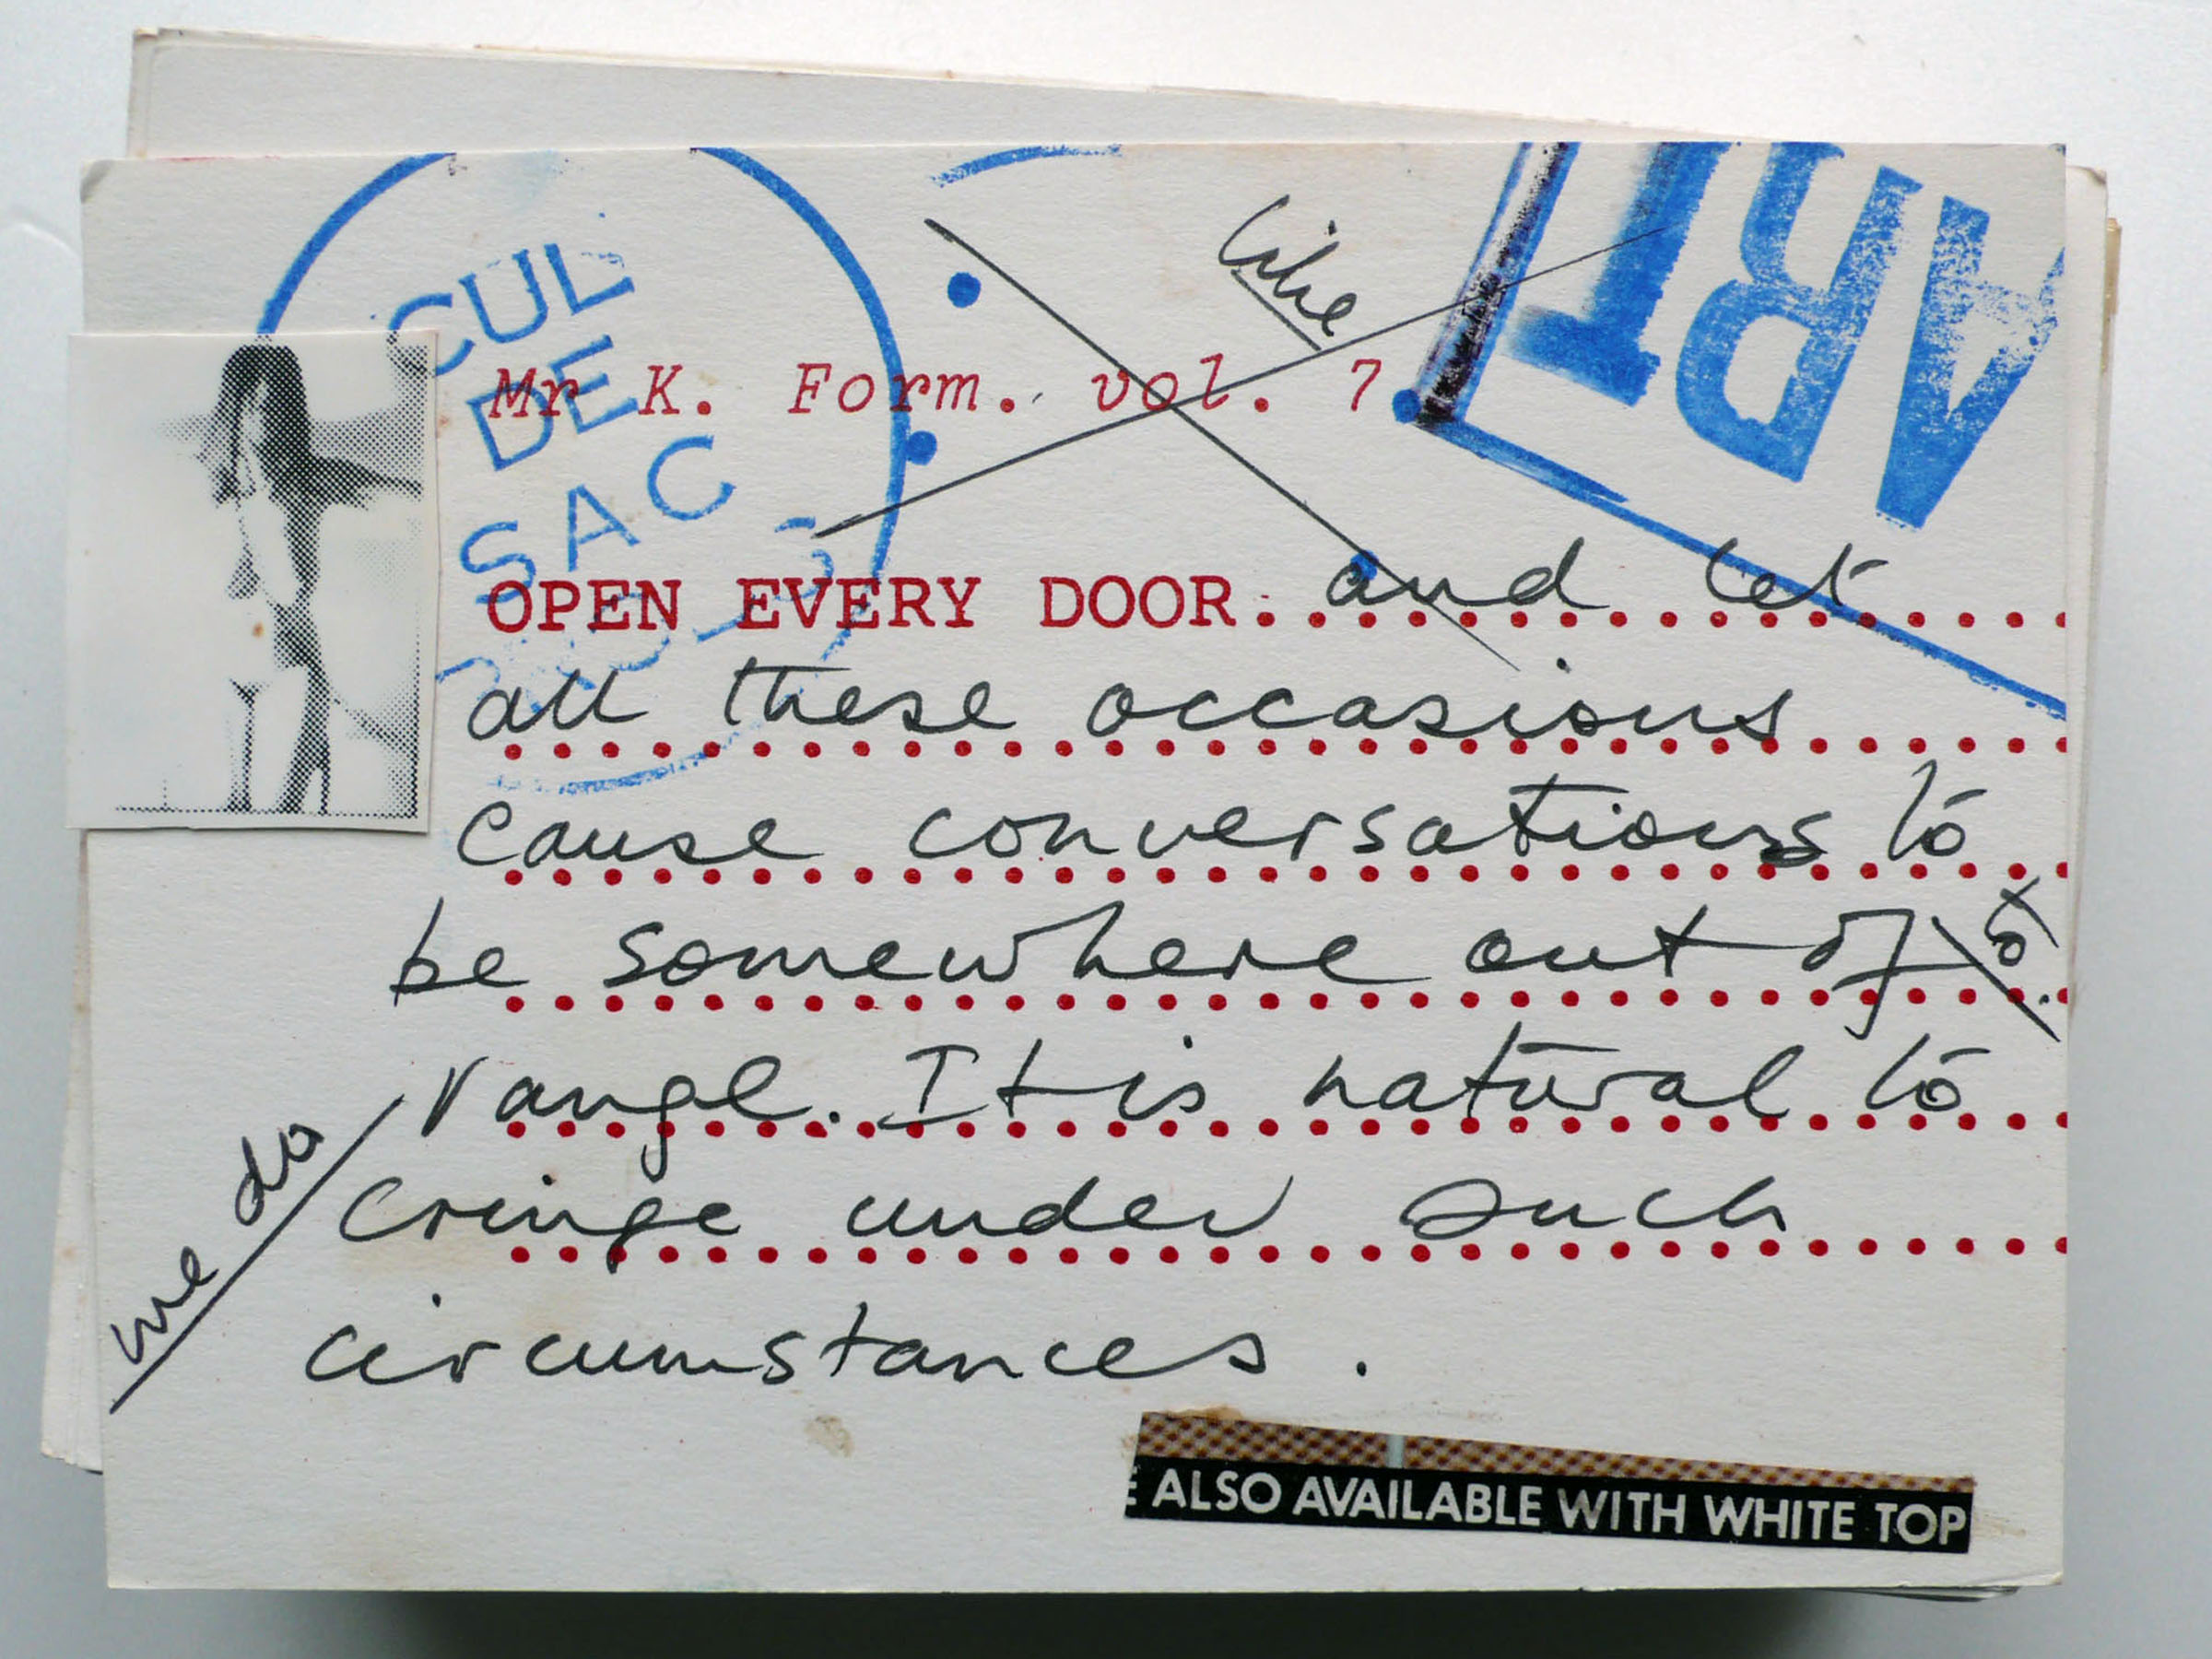 CUL
DE
SAC
ART
like
Mr K. Form. vol. 7
OPEN EVERY DOOR. and let
all these occasions
cause conversations to
be somewhere out of
range. It is natural to
we do
cringe under such
circumstances.
ALSO AVAILABLE WITH WHITE TOP